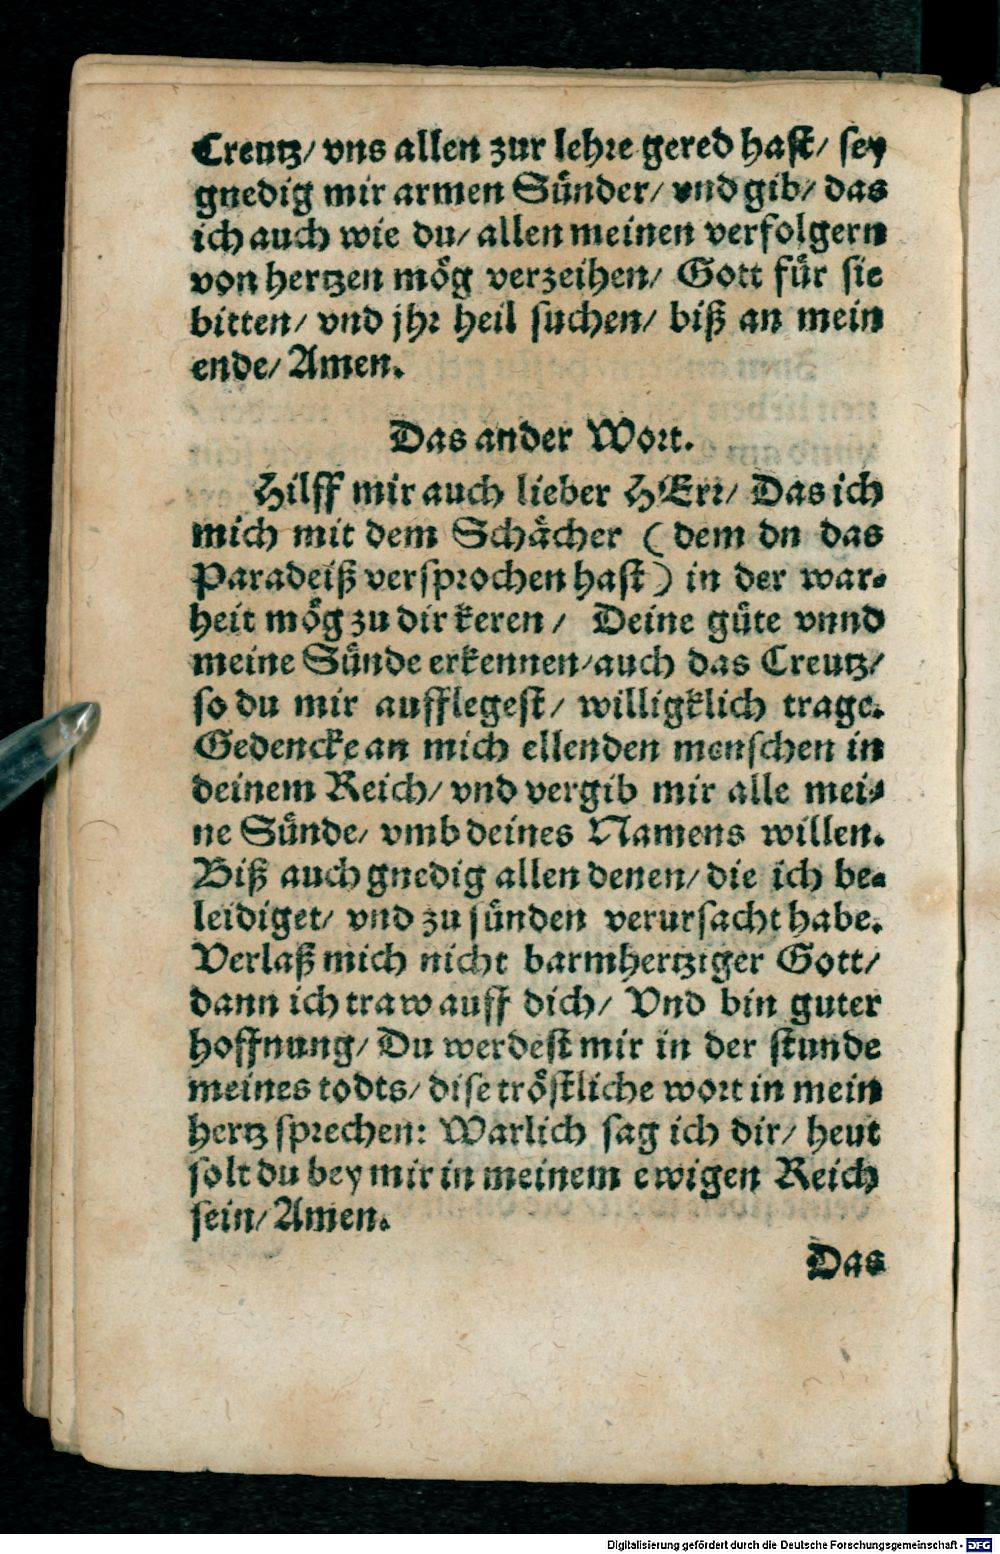 Creutz/ vns allen zur lehre gered hast/ sey
gnedig mir armen Sünder/ vnd gib/ das
ich auch wie du/ allen meinen verfolgern
von hertzen mög verzeihen/ Gott für sie
bitten/ vnd jhr heil suchen/ biß an mein
ende/ Amen.
Das ander Wort.
Hilff mir auch lieber HErr/ Das ich
mich mit dem Schächer (dem dn das
Paradeiß versprochen hast) in der war-
heit mög zu dir keren/ Deine güte vnnd
meine Sünde erkennen/ auch das Creutz/
so du mir aufflegest/ willigklich trage.
Gedencke an mich ellenden menschen in
deinem Reich/ vnd vergib mir alle mei-
ne Sünde/ vmb deines Namens willen.
Biß auch gnedig allen denen/ die ich be-
leidiget/ vnd zu sünden verursacht habe.
Verlaß mich nicht barmhertziger Gott/
dann ich traw auff dich/ Vnd bin guter
hoffnung/ Du werdest mir in der stunde
meines todts/ dise tröstliche wort in mein
hertz sprechen: Warlich sag ich dir/ heut
solt du bey mir in meinem ewigen Reich
sein/ Amen.
Das
Digitalisierung gefördert durch die Deutsche Forschungsgemeinschaft - DFG